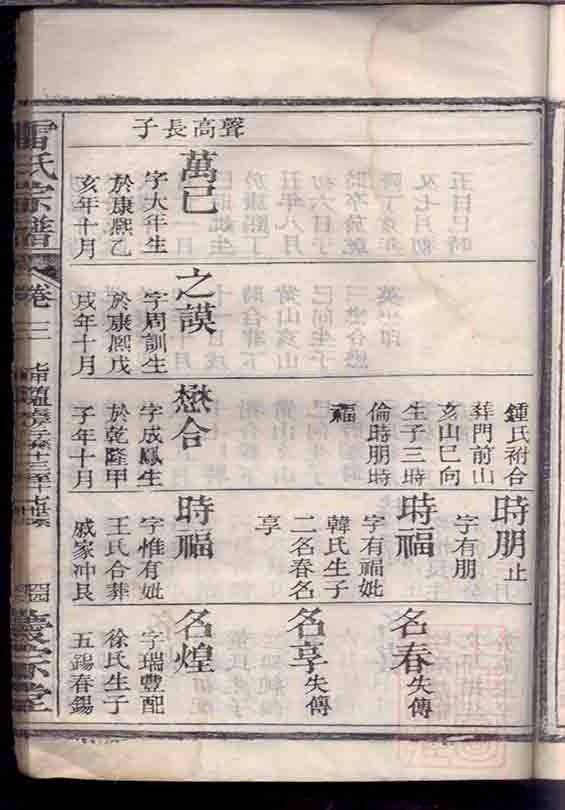 聲高長子
萬已
字大年生
於康熙乙
亥年十月
之謨
字周訓生
於康熙戊
戌年十月
鍾氏祔合
葬門前山
亥山巳向
生子三時
倫時朋時
福
懋合
字成鳳生
於乾隆甲
子年十月
時朋止
字有朋
時福
字有福妣
韓氏生子
二名春名
享
時福
字惟有妣
王氏合葬
戚家冲艮
名春失傳
名享失傳
名煌
字瑞豐配
徐氏生子
五錫春錫
雷氏宗譜
卷三